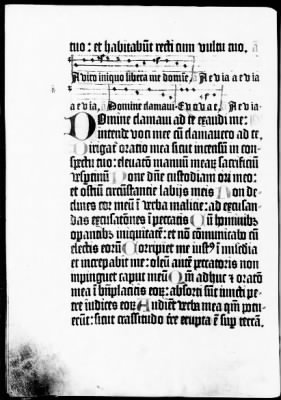 tuo: et habitabūt recti cum vultu tuo.
A viro iniquo libera me domine, A e v i a a e v i a
a e v i a, Domine clamaui. E v o v a e. A e v i a.
Domine clamaui ad te exaudi me:
intende voci mee cū clamauero ad te.
Dirigat̄ oratio mea sicut incensū in con-
spectu tuo: eleuatō manuū meaꝝ sacrificiū
vesptinū Pone dn̄e custodiam ori meo:
et ostiū circūstantie labijs meis Non de-
clines cor meū ī verba malicie: ad excusan-
das excusatōnes ī peccatis Cū hominibꝫ
opantibꝫ iniquitatē: et nō cōmunicabo cū
electis eorū Corripiet me iustꝰ ī misc̄dia
et increpabit me: oleū autē peccatoris non
impinguet caput meū Qm̄ adhuc ⁊ oratō
mea ī bn̄placitis eoꝝ: absorti sūt iuncti pe-
tre iudices eoꝝ Audient verba mea qm̄ potu-
erūt: sicut crassitudo tre erupta ē sup terrā.